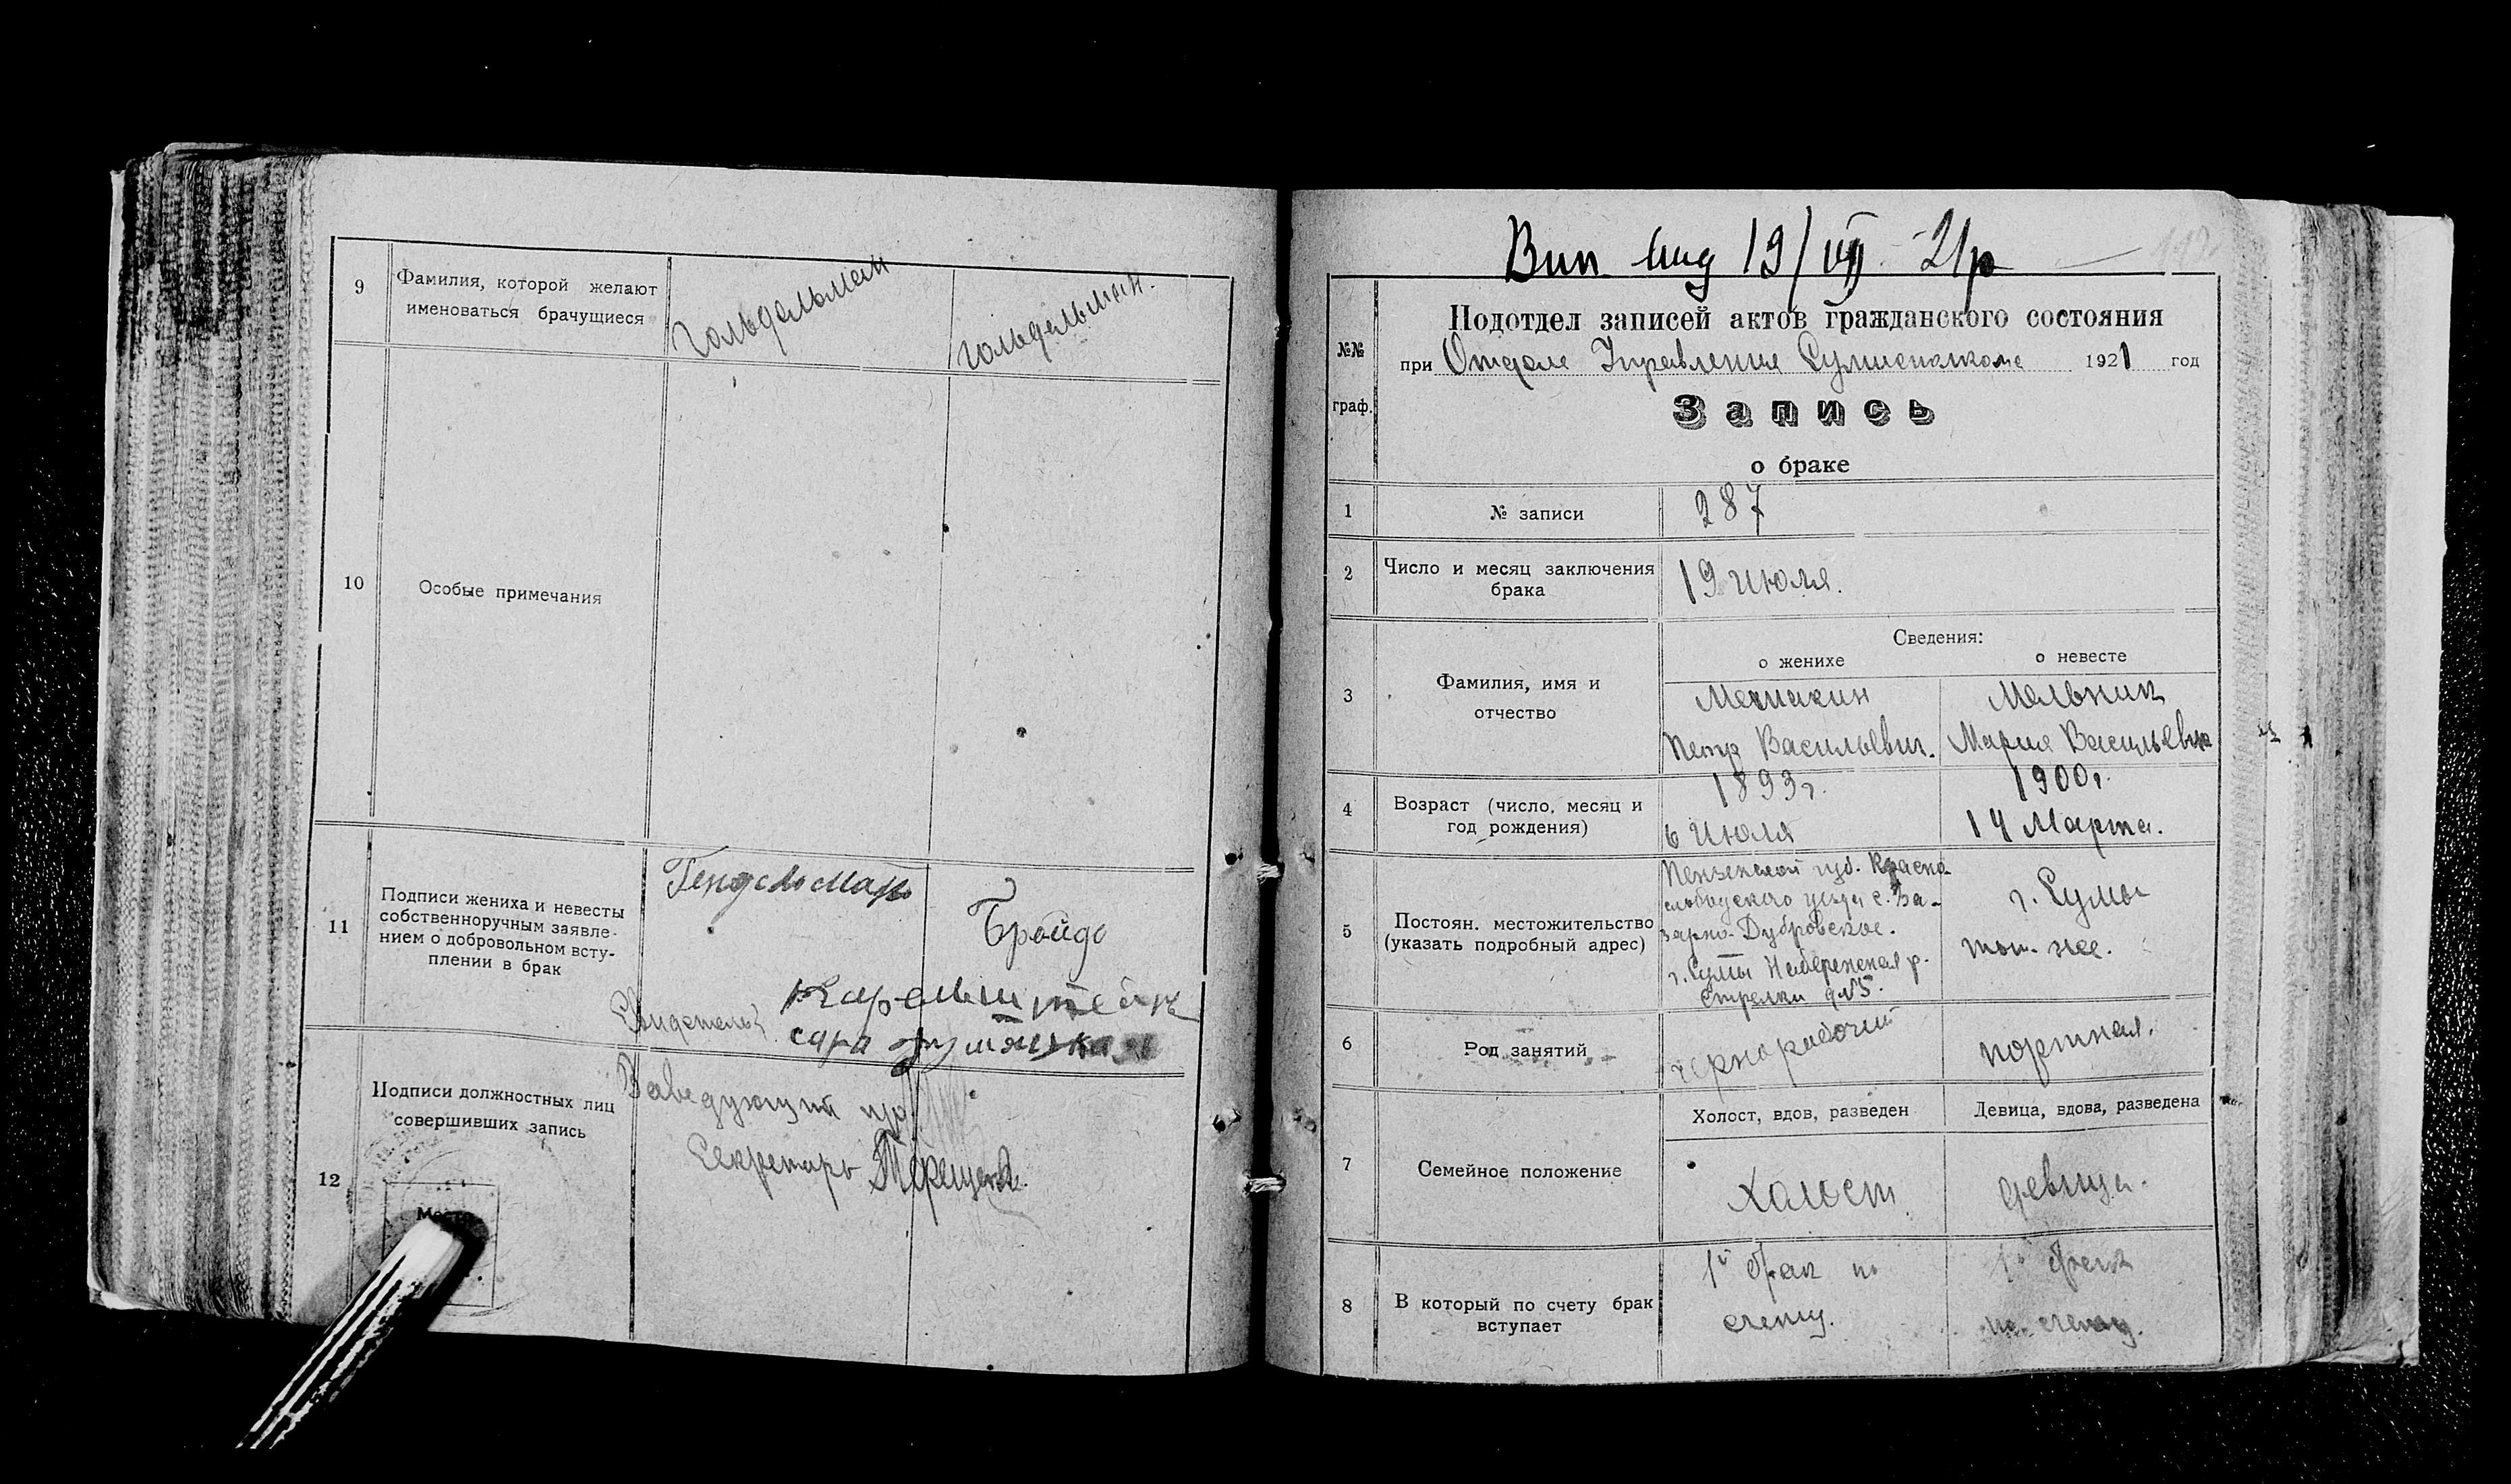 9
Фамилия, которой желают
именоваться брачущиеся
Гольдельман
Гольдельман.
10
Особые примечания
11
Подписи жениха и невесты
собственноручным заявле-
нием о добровольном всту-
плении в брак
Гендельман
Бройдо
Свидетели
Карельштейн
сара
12
Подписи должностных лиц
совершивших запись
Заведующий
Секретарь Терещенко
Вип вид 19/VII 21р
№№
граф.
Подотдел записей актов гражданского состояния
при Отделе Управления Сумисполкоме 1921 год
Запись
о браке
1
№ записи
287
2
Число и месяц заключения
брака
19 июля.
3
Фамилия, имя и
отчество
Сведения:
о женихе
о невесте
Мельник
Петр Васильевич.
Мария Васильевна
4
Возраст (число, месяц и
год рождения)
1893г.
6 июля
1900г.
14 Марта.
5
Постоян. местожительство
(указать подробный адрес)
Пензенской губ. Красно-
слободского уезда с. Ба-
зарно-Дубровское.
г. Сумы Набережная р.
Стрелки д№5.
г. Сумы
6
Род занятий
чернорабочий
портная.
7
Семейное положение
Холост, вдов, разведен
Девица, вдова, разведена
Холост
девица.
8
В который по счету брак
вступает
1й брак по
счету.
1й брак
по счету.